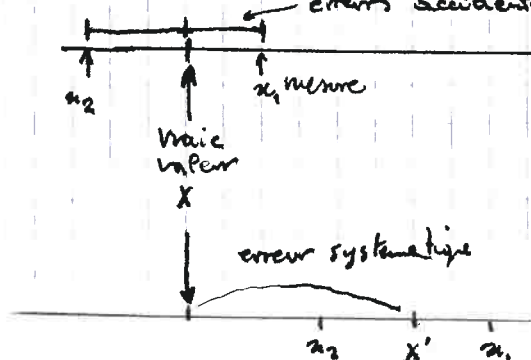 erreurs accident
x₂
x₁ mesure
Vraie
valeur
X
erreur systematique
x₂ X' x₁